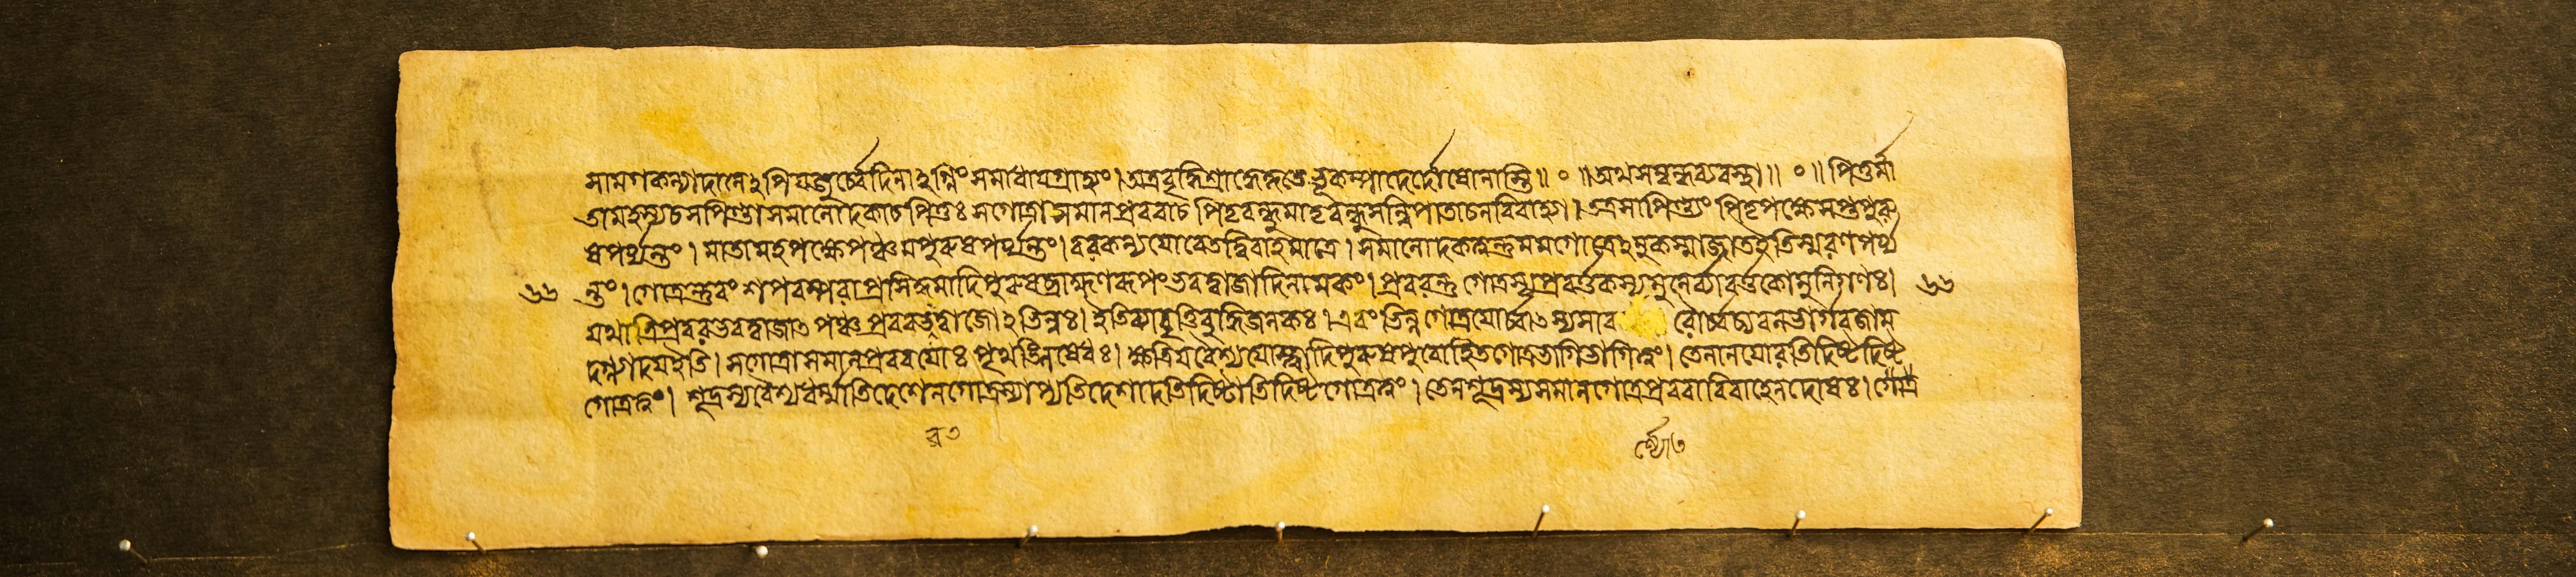 সামগকন্যাদানেঽপি যজুর্ব্বেদিনাঽগ্নিং সমাধায গ্রাহ্যং। অত্র বৃদ্ধিশ্রাদ্ধে কৃতে ভূকম্পাদের্দোষো নাস্তি॥ ০ ॥ অথ সম্বন্ধব্যবস্থা॥ ০ ॥ পিতুর্মা
তামহস্য চ সপিণ্ডা সমানোদকা চ পিতুঃ সগোত্রা সমানপ্রবরা চ পিতৃবন্ধুমাতৃবন্ধুসন্নিপাতা চ ন বিবাহ্যা। অত্র সাপিণ্ড্যং পিতৃপক্ষে সপ্তপুরু
ষপর্য্যন্তং। মাতামহপক্ষে পঞ্চমপুরুষপর্য্যন্তং। বরকন্যযোরেতদ্বিবাহমাত্রে। সমানোদকত্বন্তু মম গোত্রেঽমুকস্মাজ্জাত ইতি স্মরণপর্য্য
৬৬ ন্তং। গোত্রন্তু বংশপরম্পরাপ্রসিদ্ধমাদিপুরুষব্রাহ্মণরূপং ভরদ্বাজাদিনামকং। প্রবরন্তু গোত্রস্য প্রবর্ত্তকস্য মুনের্ব্যাবর্ত্তকো মুনিগণঃ। ৬৬
যথা ত্রিপ্রবরভরদ্বাজাৎ পঞ্চপ্রবরভরদ্বাজোঽভিন্নঃ। ইতি ব্যাবৃত্তিবুদ্ধিজনকঃ। এবং ভিন্নগোত্রযোর্ব্বাৎস্যসাব রৌর্ব্বচ্যবনভার্গবজাম
দগ্ন্যাদয ইতি। সগোত্রাসমানপ্রবরযোঃ পৃথঙ্নিষেধঃ। ক্ষত্রিযবৈশ্যযোস্ত্বাদিপুরুষপুরোহিতগোত্রভাগিত্বং। তেনানযোরতিদিষ্ট
গোত্রত্বং। শূদ্রস্য বৈশ্যধর্ম্মাতিদেশেন গোত্রস্যাপ্যতিদেশাদতিদিষ্টাতিদিষ্টগোত্রত্বং। তেন শূদ্রস্য সমানগোত্রপ্রবরাবিবাহে ন দোষঃ। গোত্র